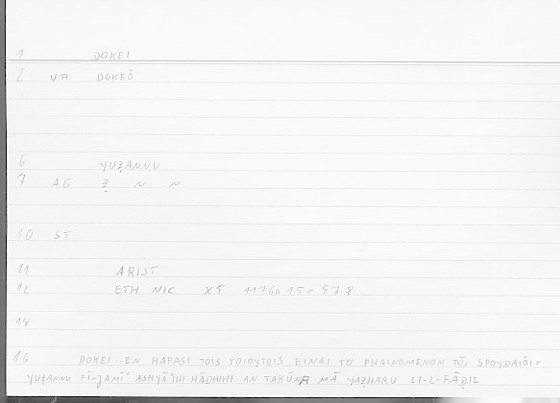 1 DOKEI
2 VA DOKEŌ
6 YUẒANNU
7 AG Ẓ N N
10 ST
11 ARIST
12 ETH NIC X5 1176a15 = 57.8
14
16 DOKEI EN HAPASI TOIS TOIOYTOIS EINAI TO PHAINOMENON TŌI SPOYDAIŌI =
YUẒANNU FĪ-JAMĪʿ ASHYĀʾIHI HĀDHIHI AN TAKŪNA MĀ YAẒHARU LI-L-FĀḌIL